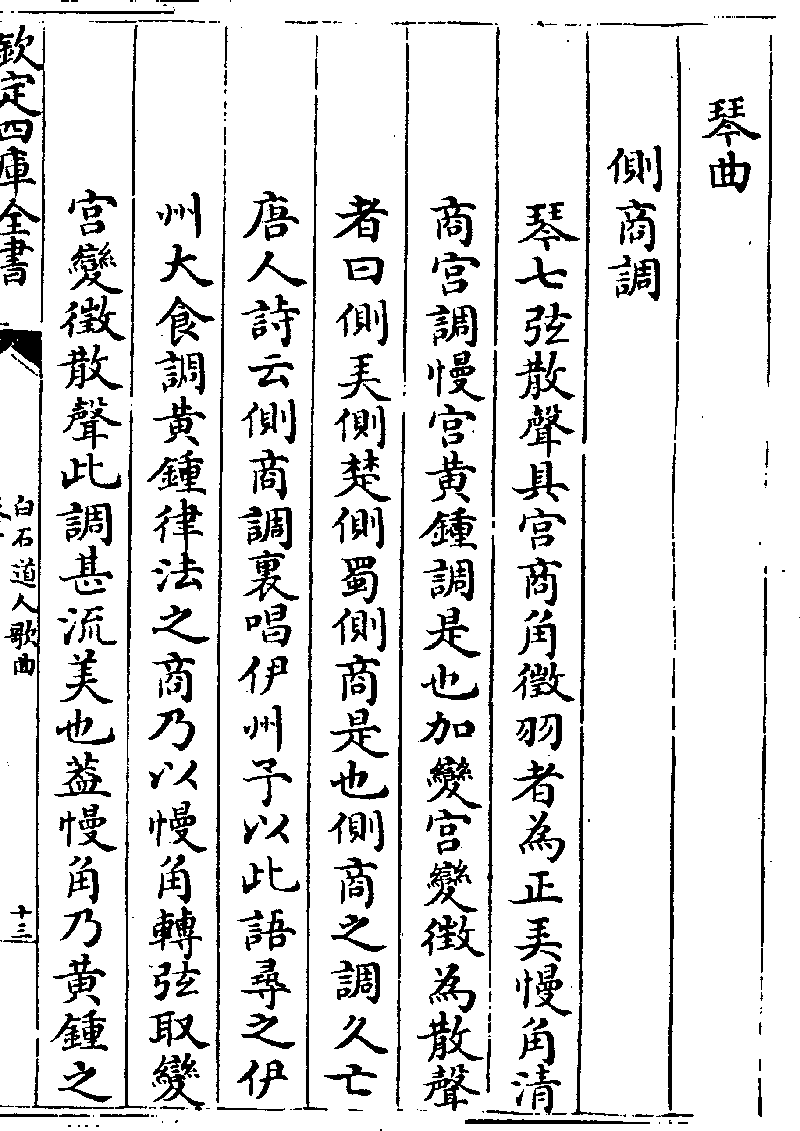 琴曲
側商調
琴七弦散聲具宮商角徵羽者為正弄慢角清
商宮調慢宮黃鍾調是也加變宮變徵為散聲
者曰側弄側楚側蜀側商是也側商之調久亡
唐人詩云側商調裏唱伊州予以此語尋之伊
州大食調黃鍾律法之商乃以慢角轉弦取變
宮變徵散聲此調甚流美也葢慢角乃黃鍾之
欽定四庫全書
白石道人歌曲
十三